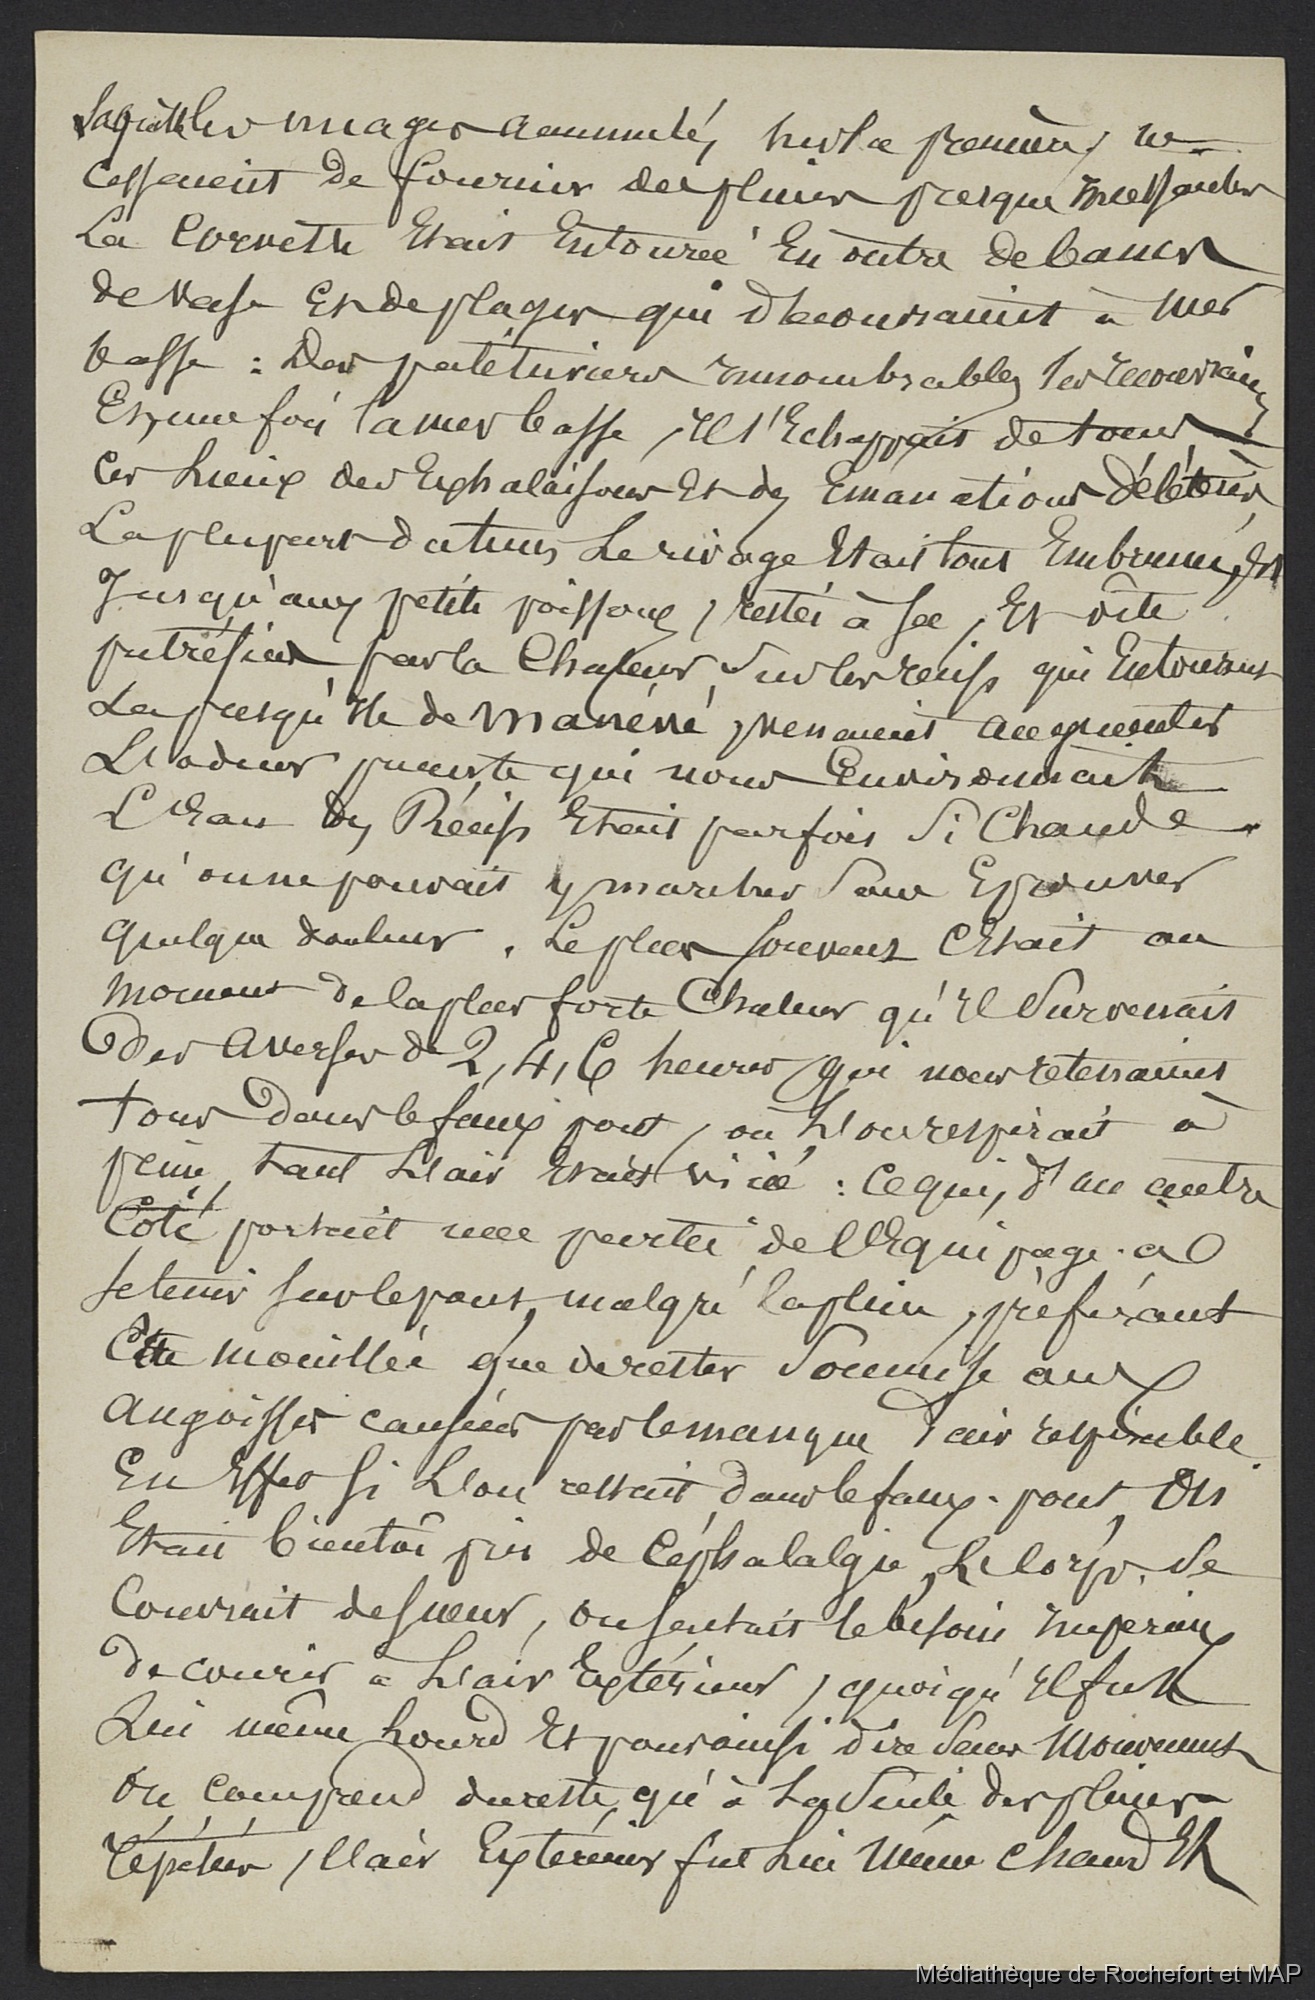 les nuages accumulés sur la première, ne
cessaient de fournir des pluies presque incessantes
La Corvette Etait Entourée En outre de bancs
de vase Et de plages qui découvraient à mer
basse : Des palétuviers innombrables les recouvraient
Et, une fois la mer basse, Il s'Echappait de tous
ces lieux des Exhalaisons Et des Emanations délétères,
La plupart du tems Le rivage Etait tout Embrumé, Et
Jusqu'aux petits poissons, restés à sec, Et vite
putréfiés par la Chaleur, Sur les récifs qui Entourent
La presqu'Ile de Manévé, venaient augmenter
L'odeur puante qui nous Environnait
L'Eau des Récifs Etait parfois Si Chaude
qu'on ne pouvait y marcher Sans Eprouver
quelque douleur. Le plus souvent C'Etait au
moment de la plus forte Chaleur qu'Il Survenait
Des Averses de 2, 4, 6 heures, qui nous retenaient
tous Dans le faux pont, où L'on respirait à
peine, tant L'air Etait vicié : ce qui, d'un autre
Coté portait une partie de l'Equipage à
se tenir sur le pont, malgré la pluie, préférant
Etre mouillée que de rester Soumise aux
Angoisses causées par le manque d'air respirable.
En Effet si L'on restait dans le faux-pont, On
Etait bientôt pris de Céphalalgie, Le Corps Se
Couvrait de sueur, on sentait le besoin impérieux
de courir à L'air Extérieur, quoiqu'Il fut
Lui même Lourd Et pour ainsi dire Sans Mouvement
On comprend du reste qu'à La Suite des pluies
répétées, l'air Extérieur fut Lui même chaud Et
Médiathèque de Rochefort et MAP